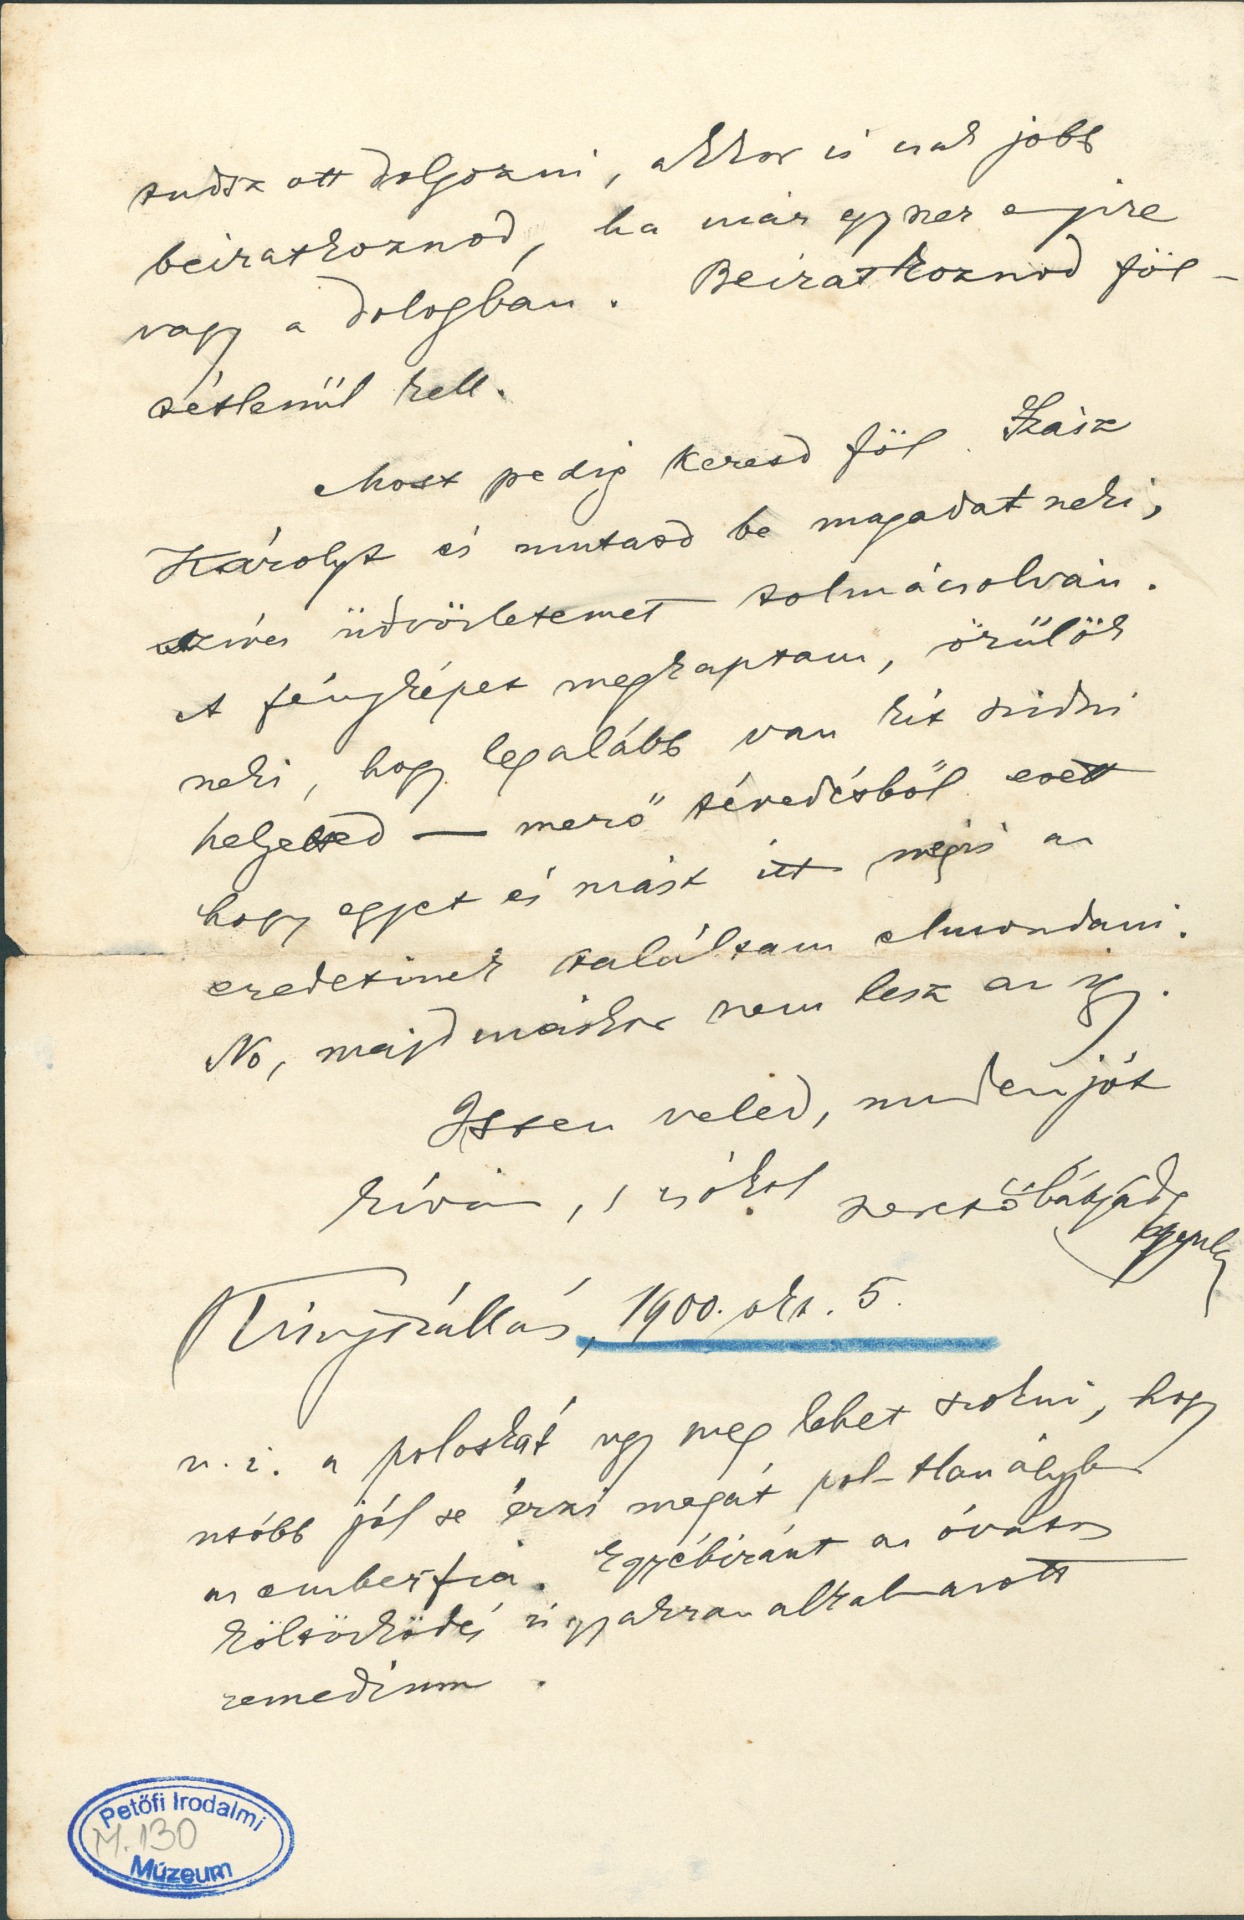 tudsz ott dolgozni, akkor is csak jobb
beiratkoznod, ha már egyszer ennyire
vagy a dologban. Beiratkoznod föl-
tétlenül kell.
Most pedig keresd föl Szász
Károlyt és mutasd be magadat neki,
szíves üdvözletemet tolmácsolván.
A fényképet megkaptam, örülök
neki, hogy legalább van kit szidni
helyetted — merő tévedésből esett
hogy egyet és mást itt mégis az
eredetinek találtam elmondani.
No, majd máskor nem lesz az igy.
Isten veled, minden jót
kíván, s csókol szerető bátyád
Gyula
Kisujszállás, 1900. okt. 5.
u. i. a poloskát ugy meg lehet szokni, hogy
utóbb jól se érzi magát poloskátlan ágyban
az emberfia. Egyébiránt az óvatos
költözködés is gyakran alkalmazott
remedium.
Petőfi Irodalmi
M. 130
Múzeum